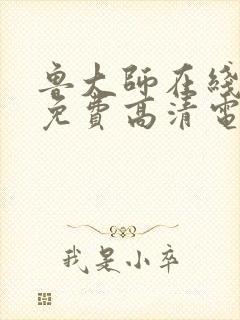 鲁大师在线
免费高清电
我是小卒